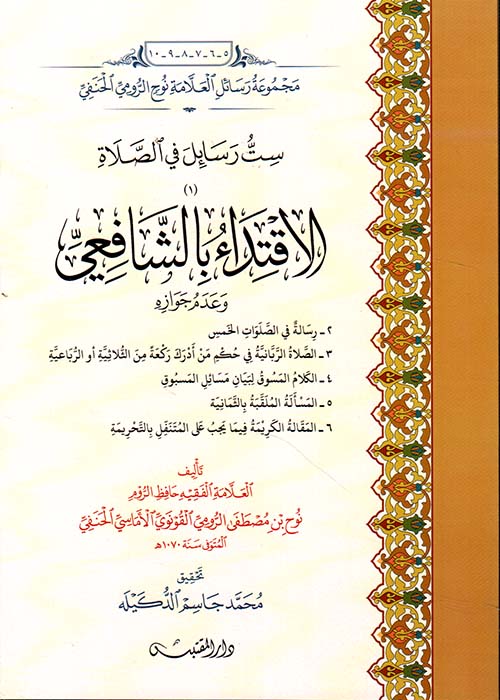 ٥-٦-٧-٨-٩-١٠
مَجْمُوعَةُ رَسَائِلِ الْعَلَّامَةِ نُوحٍ الرُّومِيِّ الْحَنَفِيِّ
سِتُّ رَسَائِلَ فِي الصَّلَاةِ
(١)
الِاقْتِدَاءُ بِالشَّافِعِيِّ
وَعَدَمُ جَوَازِهِ
٢ - رِسَالَةٌ فِي الصَّلَوَاتِ الْخَمْسِ
٣ - الصَّلَاةُ الرَّبَّانِيَّةُ فِي حُكْمِ مَنْ أَدْرَكَ رَكْعَةً مِنَ الثُّلَاثِيَّةِ أَوِ الرُّبَاعِيَّةِ
٤ - الكَلَامُ المَسُوقُ لِبَيَانِ مَسَائِلِ المَسْبُوقِ
٥ - المَسْأَلَةُ المُلَقَّبَةُ بِالثَّمَانِيَةِ
٦ - المَقَالَةُ الكَرِيْمَةُ فِيمَا يَجِبُ عَلَى المُتَنَفِّلِ بِالتَّحْرِيمَةِ
تَأْلِيفُ
الْعَلَّامَةِ الْفَقِيهِ حَافِظِ الرُّومِ
نُوحِ بْنِ مُصْطَفَى الرُّومِيِّ الْقُونَوِيِّ الْأَمَاسِيِّ الْحَنَفِيِّ
الْمُتَوَفَّى سَنَة ١٠٧٠هـ
تَحْقِيقُ
مُحَمَّد جَاسِم الدُّكَيْلَه
دار المقتبس